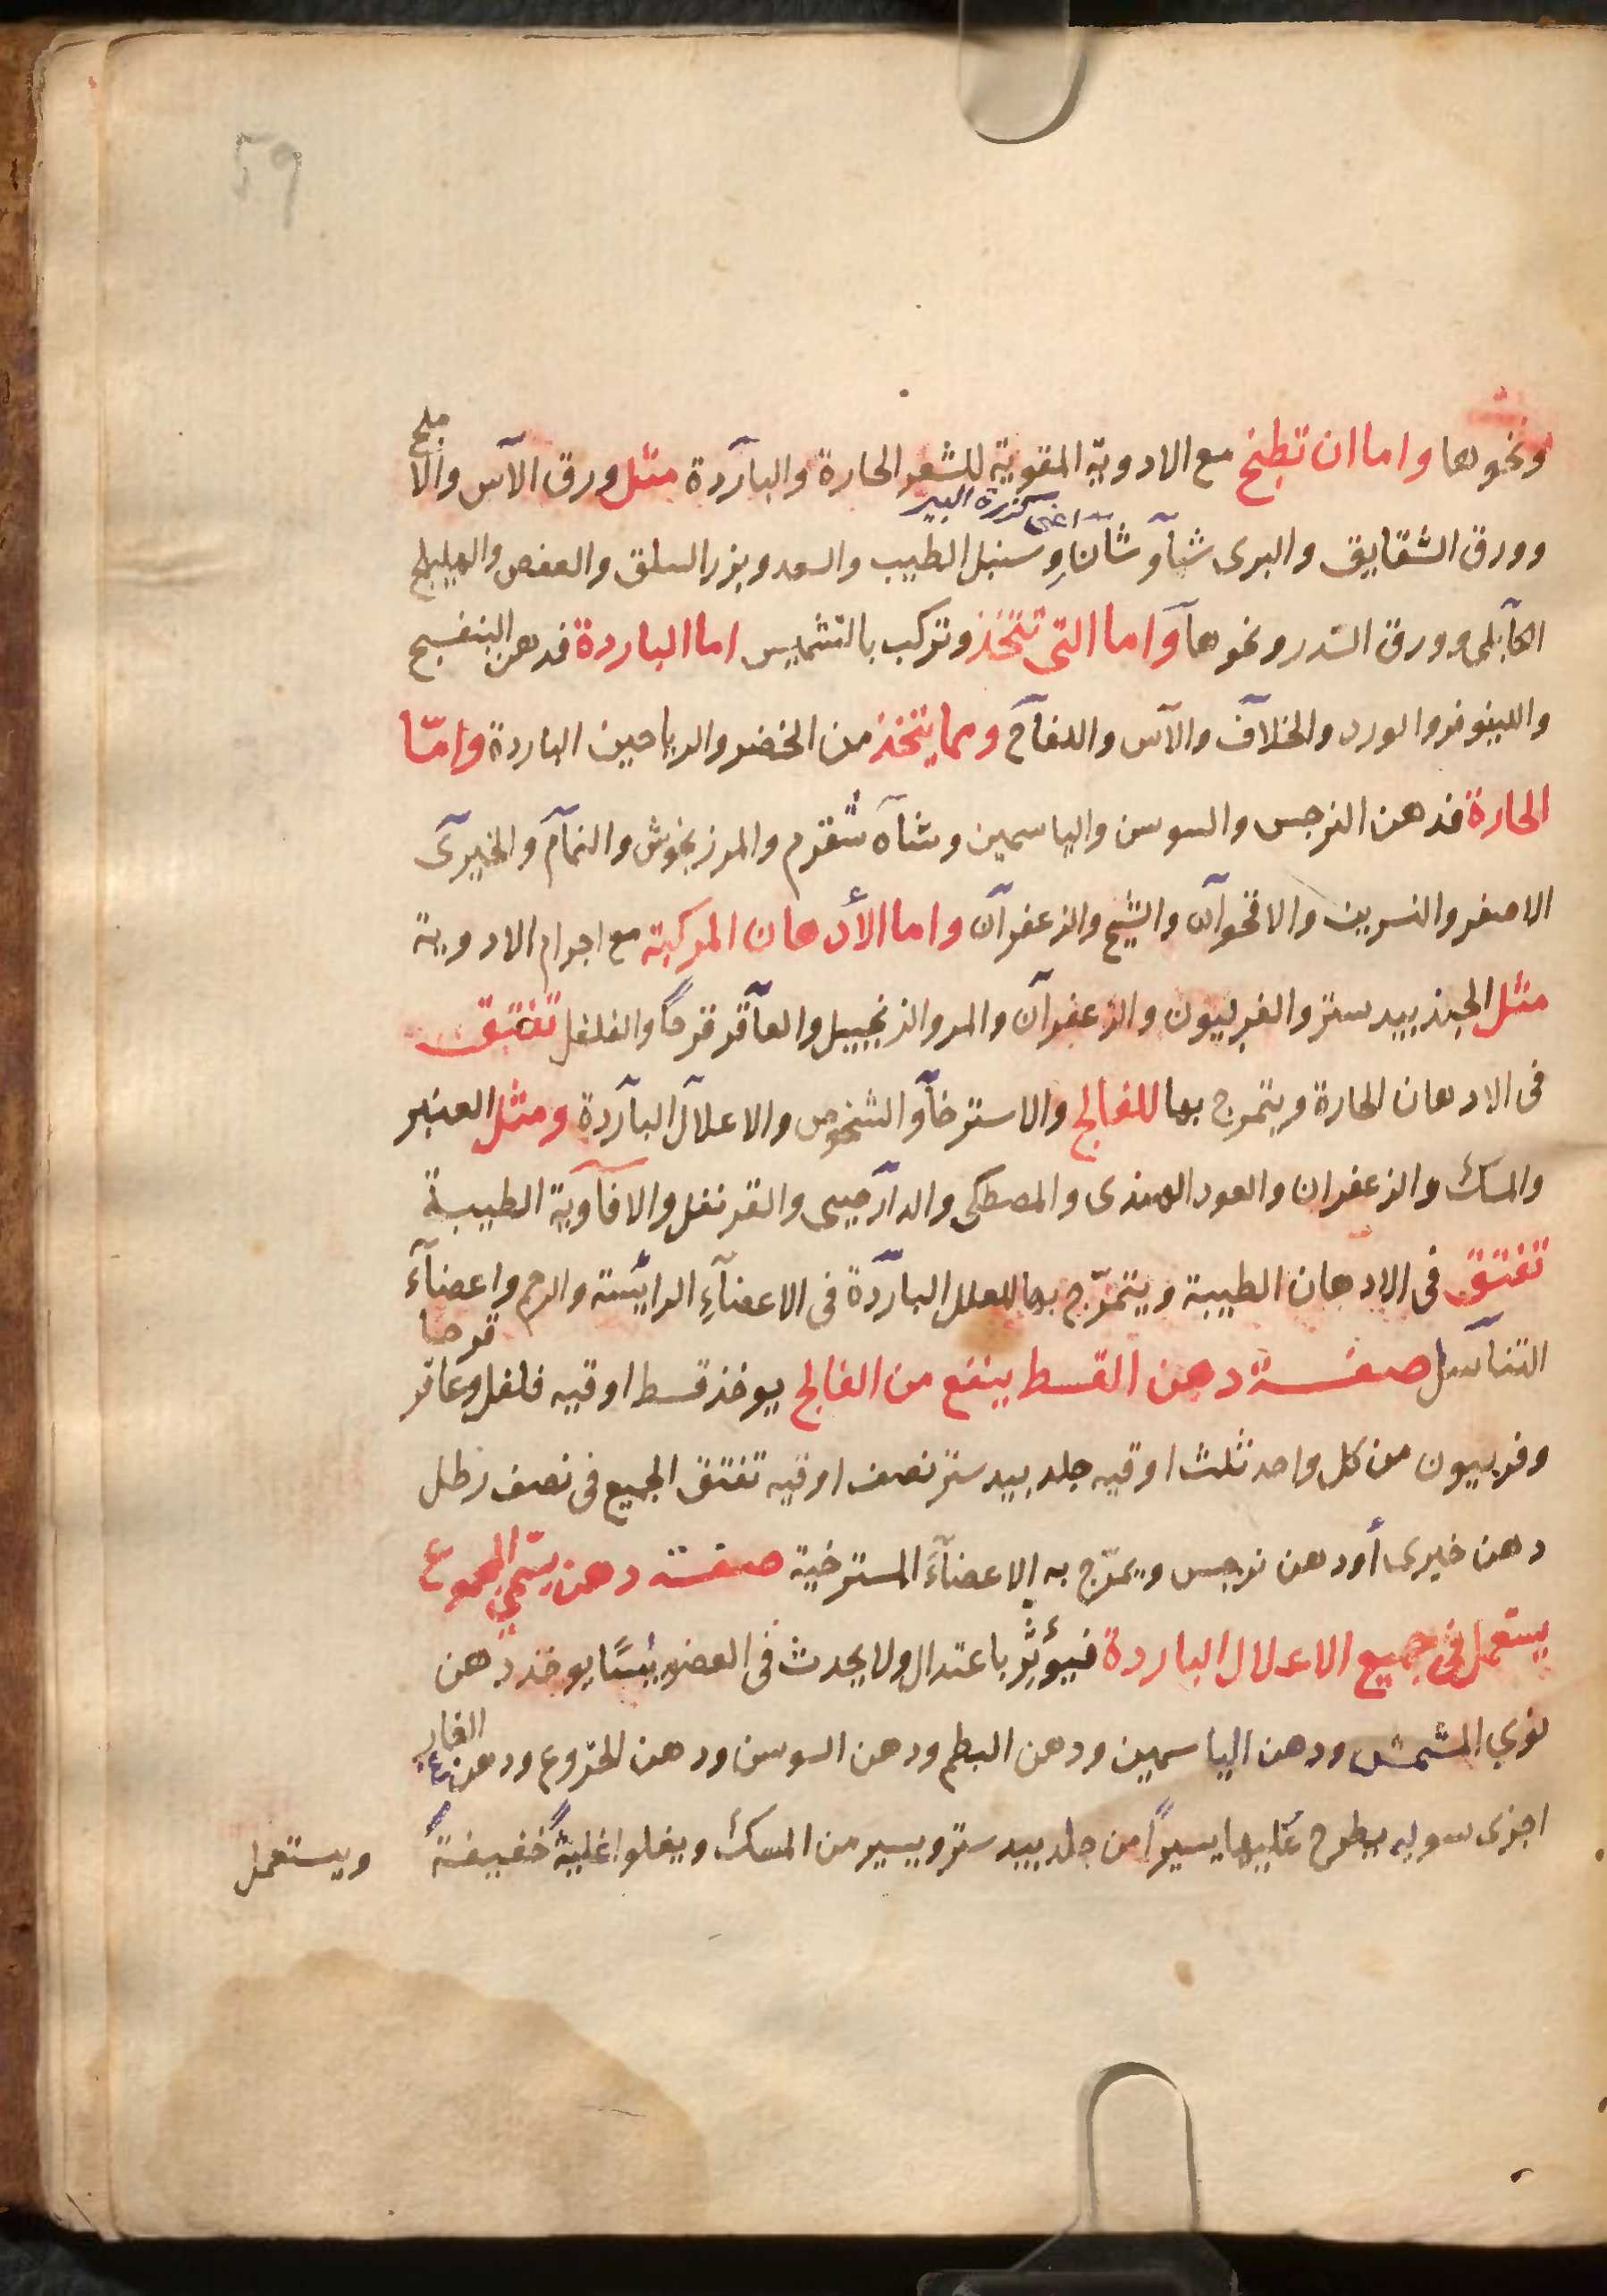 59
ونحوها واما ان تطبخ مع الادوية المقوية للشعر الحارة والبآردة مثل ورق الآس والاملج
وورق الشقايق والبرى شيآوشآن اعنى كزبرة البير وسنبل الطيب والسعد وبزر السلق والعفص والهليلج
الكآبلى وورق السدر ونحوهآ واما التى تتخذ وتركب بالتشميس اما الباردة فدهن البنفسج
واللينوفر والورد والخلآف والآس والتفآح ومما يتخذ من الخضر والرياحين الباردة وامّا
الحارة فدهن النرجس والسوسن والياسمين وشآه شقرم والمرزنجوش والنمآم والخيرى
الاصفر والنسرين والاقحوآن والشيح والزعفرآن واما الأدهان المركبة مع اجرام الادوية
مثل الجندبيدستر والفربيون والزعفرآن والمر والزنجبيل والعآقرقرحًا والفلفل تفتق
فى الادهان الحارة ويتمرج بها للفالج والاسترخآ والشخوص والاعلآل البآردة ومثل العنبر
والمسك والزعفران والعود الهندى والمصطكى والدآرصينى والقرنفل والافآوية الطيبة
تفتق فى الادهان الطيبة ويتمرّج بها للعلل البآردة فى الاعضآءِ الرائيسة والرحم واعضآء
التنآسل صفة دهن القسط ينفع من الفالج يوخذ قسط اوقيه فلفل وعاقر قرحا
وفربيون من كل واحد ثلث اوقيه جلدبيدستر نصف اوقيه تفتق الجميع فى نصف رطل
دهن خيرى أو دهن نرجس ويمرّج به الاعضآءَ المسترخية صفة دهن يسمّي المجموع
يستعمل فى جميع الاعلال الباردة فيؤثر باعتدال ولا يحدث فى العضو يبسًا يوخذ دهن
نوي المشمش ودهن الياسمين ودهن البطم ودهن السوسن ودهن الخرّوع ودهن الغار
اجزى سويه يطرح عليها يسيرًا من جلدبيدستر ويسير من المسك ويغلوا غليةً خفيفةً ويستعمل